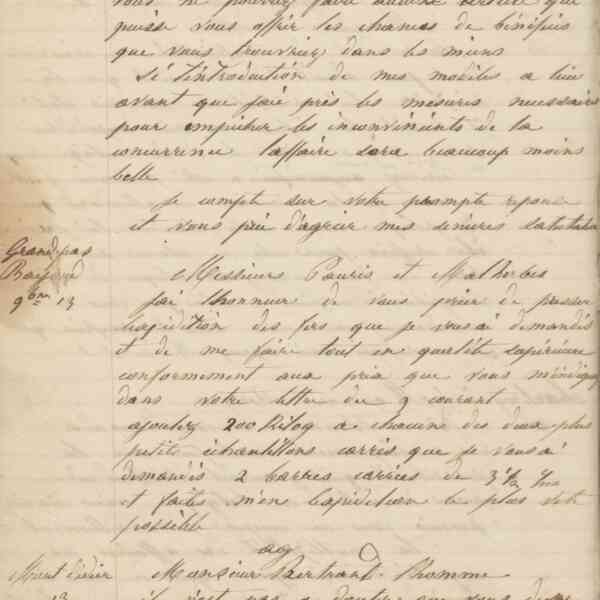 vous ne pourriez faire aucune
puisse vous offrir les chances de bénéficis
que vous trouvriez dans les miens
Si l'introduction de mes modèles a lieu
avant que j'aie pris les mesures necessaires
pour empêcher les inconvénients de la
concurrence l'affaire sera beaucoup moins
belle
Je compte sur votre prompte reponse
et vous prie d'agréer mes sincères salutations
Grandpas
9bre 13
Messieurs Pauris et Malherbes
J'ai l'honneur de vous prier de presser
l'expédition des fers que je vous ai demandés
et de me faire tout en qualité supérieure
conformement aux prix que vous m'indiquez
dans votre lettre du 9 courant
ajoutez 200 Kilog a chacun des deux plus
petits échantillons carrés que je vous ai
demandés 2 barres carrées de 3 1/2 
et faites m'en l'expédition le plus vite
possible
Montdidier
13
Monsieur Bertrand Lhomme
il n'est pas a douter que vous